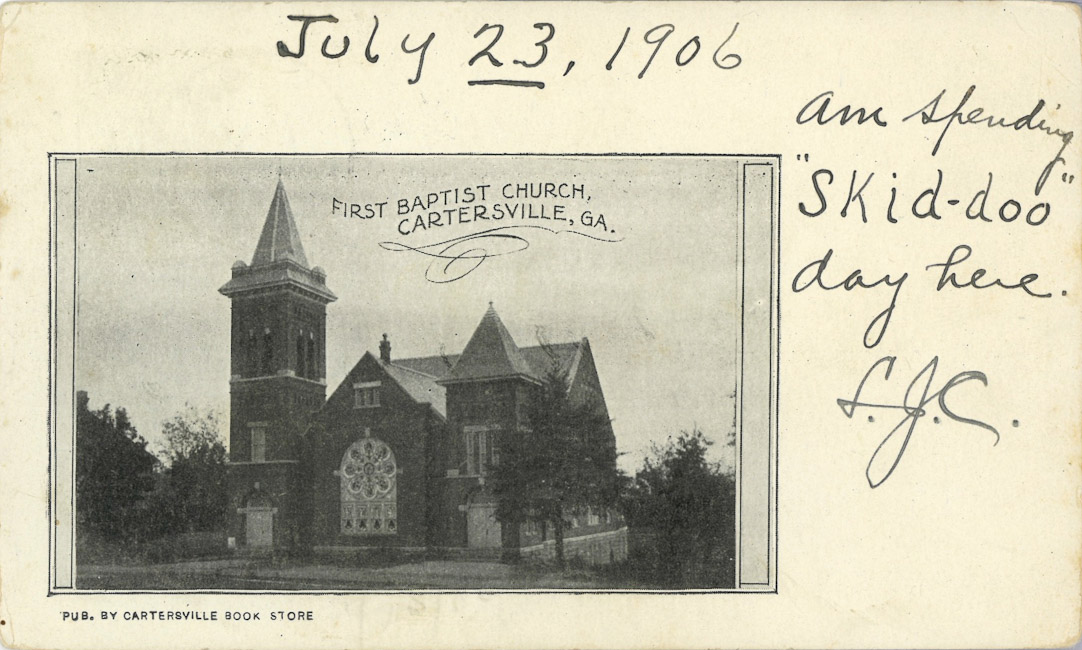 July 23, 1906
am spending
"SKid-doo"
day here.
S.J.C.
FIRST BAPTIST CHURCH,
CARTERSVILLE, GA.
PUB. BY CARTERSVILLE BOOK STORE